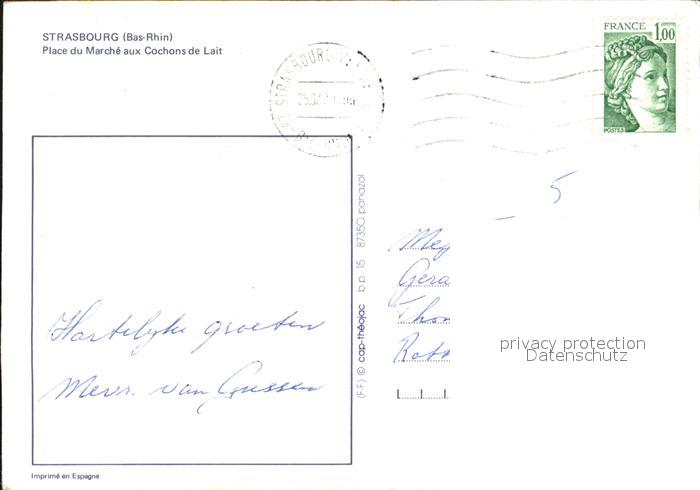 STRASBOURG (Bas-Rhin)
Place du Marché aux Cochons de Lait
FRANCE
1,00
POSTES
STRASBOURG
5
Hartelijke groeten
Mevr. van
(F-F) © cap-théojac b.p. 15 87350 panazol
Mey
Gera
Thom
Rott
privacy protection
Datenschutz
Imprimé en Espagne